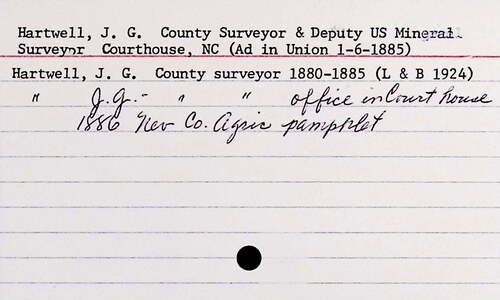 Hartwell, J. G.  County Surveyor & Deputy US Mineral
Surveyor  Courthouse, NC (Ad in Union 1-6-1885)
Hartwell, J. G.  County surveyor 1880-1885 (L & B 1924)
"  J.G.-  "  "  office in Court house
1886 Nev Co. Agric pamphlet